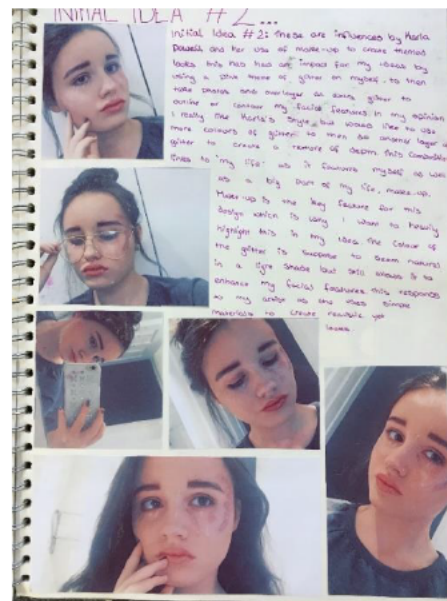 INITIAL IDEA #2...
Initial Idea #2: these are influences by Karla
Powell and her use of make-up to create themed
looks this has had an impact for my ideas by
using a theme of glitter on myself, to then
take photos and overlayer an extra glitter to
outline or contour my facial features. In my opinion
I really like Karla's style but would like to use
more colours of glitter to then be another layer of
glitter to create a texture of depth. this
links to my life: as it features myself as well
as a big part of my life, make-up.
Make-up is the key feature for this
design which is why I want to heavily
highlight this in my idea. The colour of
the glitter is suppose to seem natural
in a light shade but still allows it to
enhance my facial features. this responds
to my artist as she uses simple
materials to create realistic
looks.